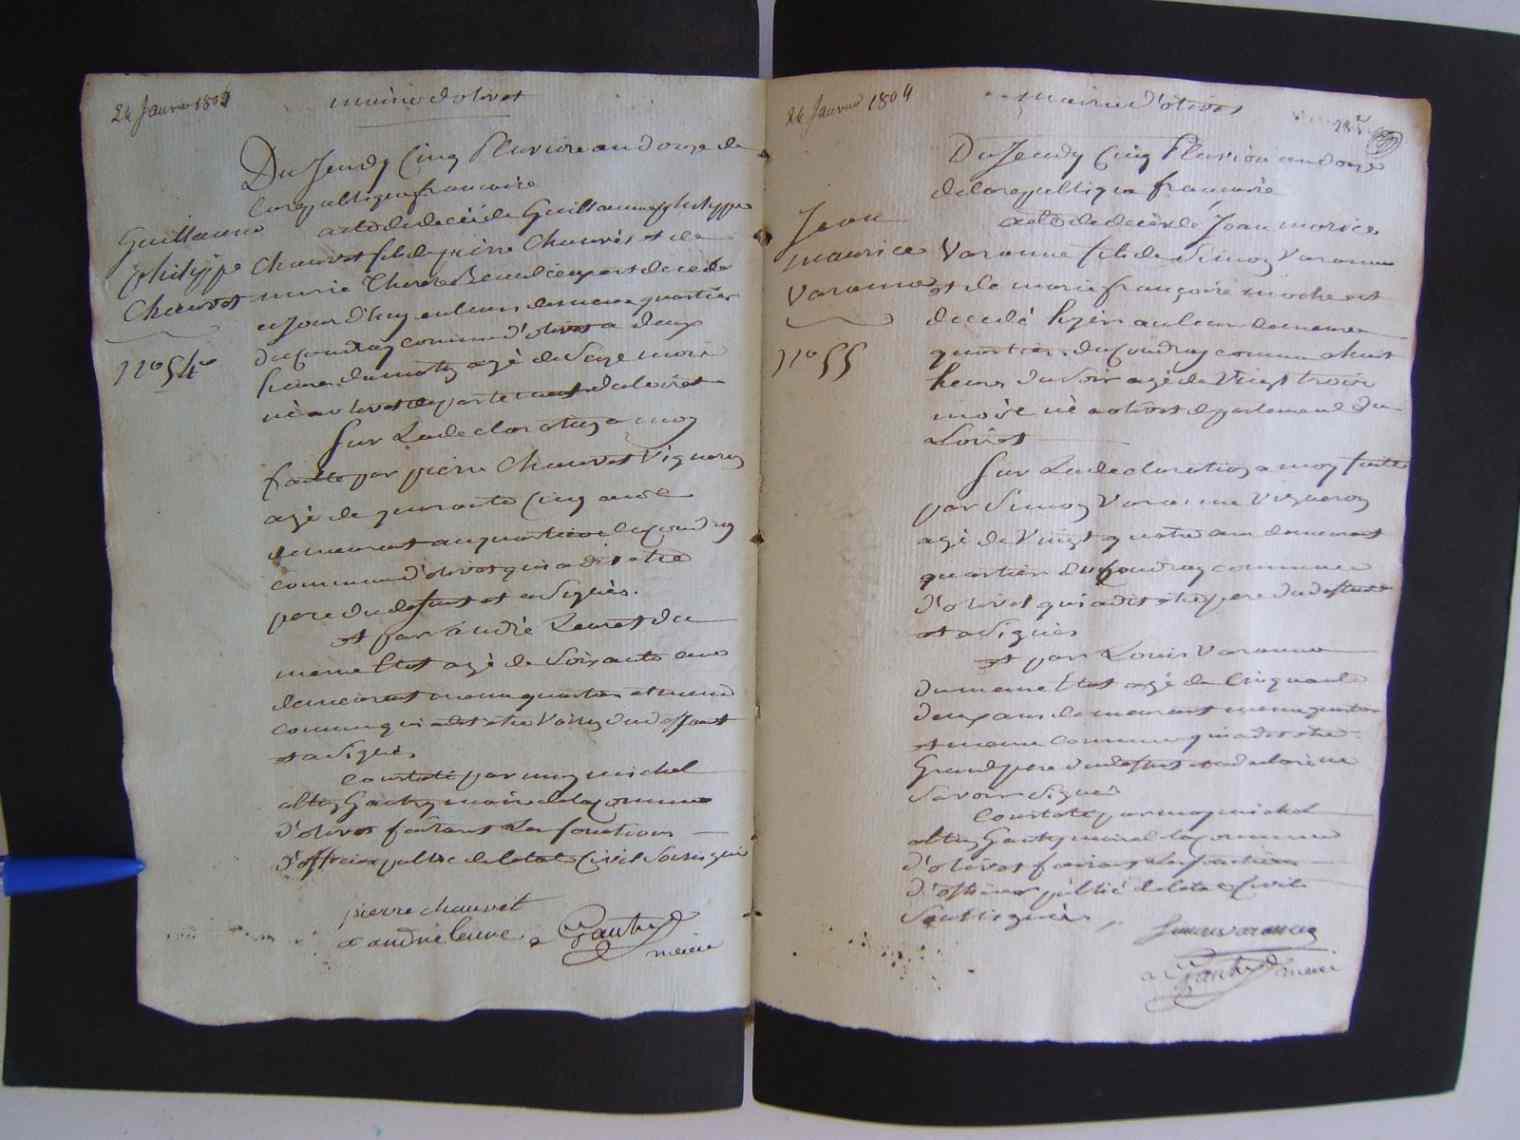 24 Janvier 1804
mairie d'olivet
Du Jeudy Cinq Pluviose an douze de
la republique francoise
Guillaume
philippe
Chauvet
n° 54
acte de decè de Guillaume philippe
Chauvet fils de pierre Chauvet et de
marie Therese decedé
ce jour d'huy en leur demeure quartier
du Coudray commune d'olivet a deux
heures du matin agé de Seze mois
né a olivet departement du loiret
Sur La declaration a moy
faitte par pierre Chauvet Vigneron
agé de quarante Cinq ans
demeurant au quartier du Coudray
commune d'olivet qui a dit etre
pere du defunt et a Signés.
et par andré Leuret du
meme Etat agé de Soixante ans
demeurant meme quartier et meme
commune qui a dit etre Voisin du deffunt
et a Signé.
Constaté par moy michel
altin Gautry maire de la Commune
d'olivet faisant Les fonctions
d'officier public de letat Civil Soussigné
pierre chauvet
andré leuret
Gautry
maire
26 Janvier 1804
mairie d'olivet
28
Du Jeudy Cinq Pluviose an douze
de la republique francoise
Jean
maurice
Varanne
n° 55
acte de decès de Jean morice
Varanne fils de Simon Varanne
et de marie francoise
decedé hyer au leur demeure
quartier du Coudray commune a huit
heures du Soir agé de Vingt trois
mois né a olivet departement du
Loiret
Sur La declaration a moy faitte
par Simon Varanne Vigneron
agé de Vingt quatre ans demeurant
quartier du Coudray commune
d'olivet qui a dit etre pere du deffunt
et a Signés
et par Louis Varanne
du meme Etat agé de Cinquante
deux ans demeurant meme quartier
et meme commune qui a dit etre
Grand pere du defunt et a declaré ne
Savoir Signer
Constaté par moy michel
altin Gautry maire de la Commune
d'olivet faisant Les fonctions
d'officier public de letat Civil
Soussigné
Simon varanne
Gautry maire